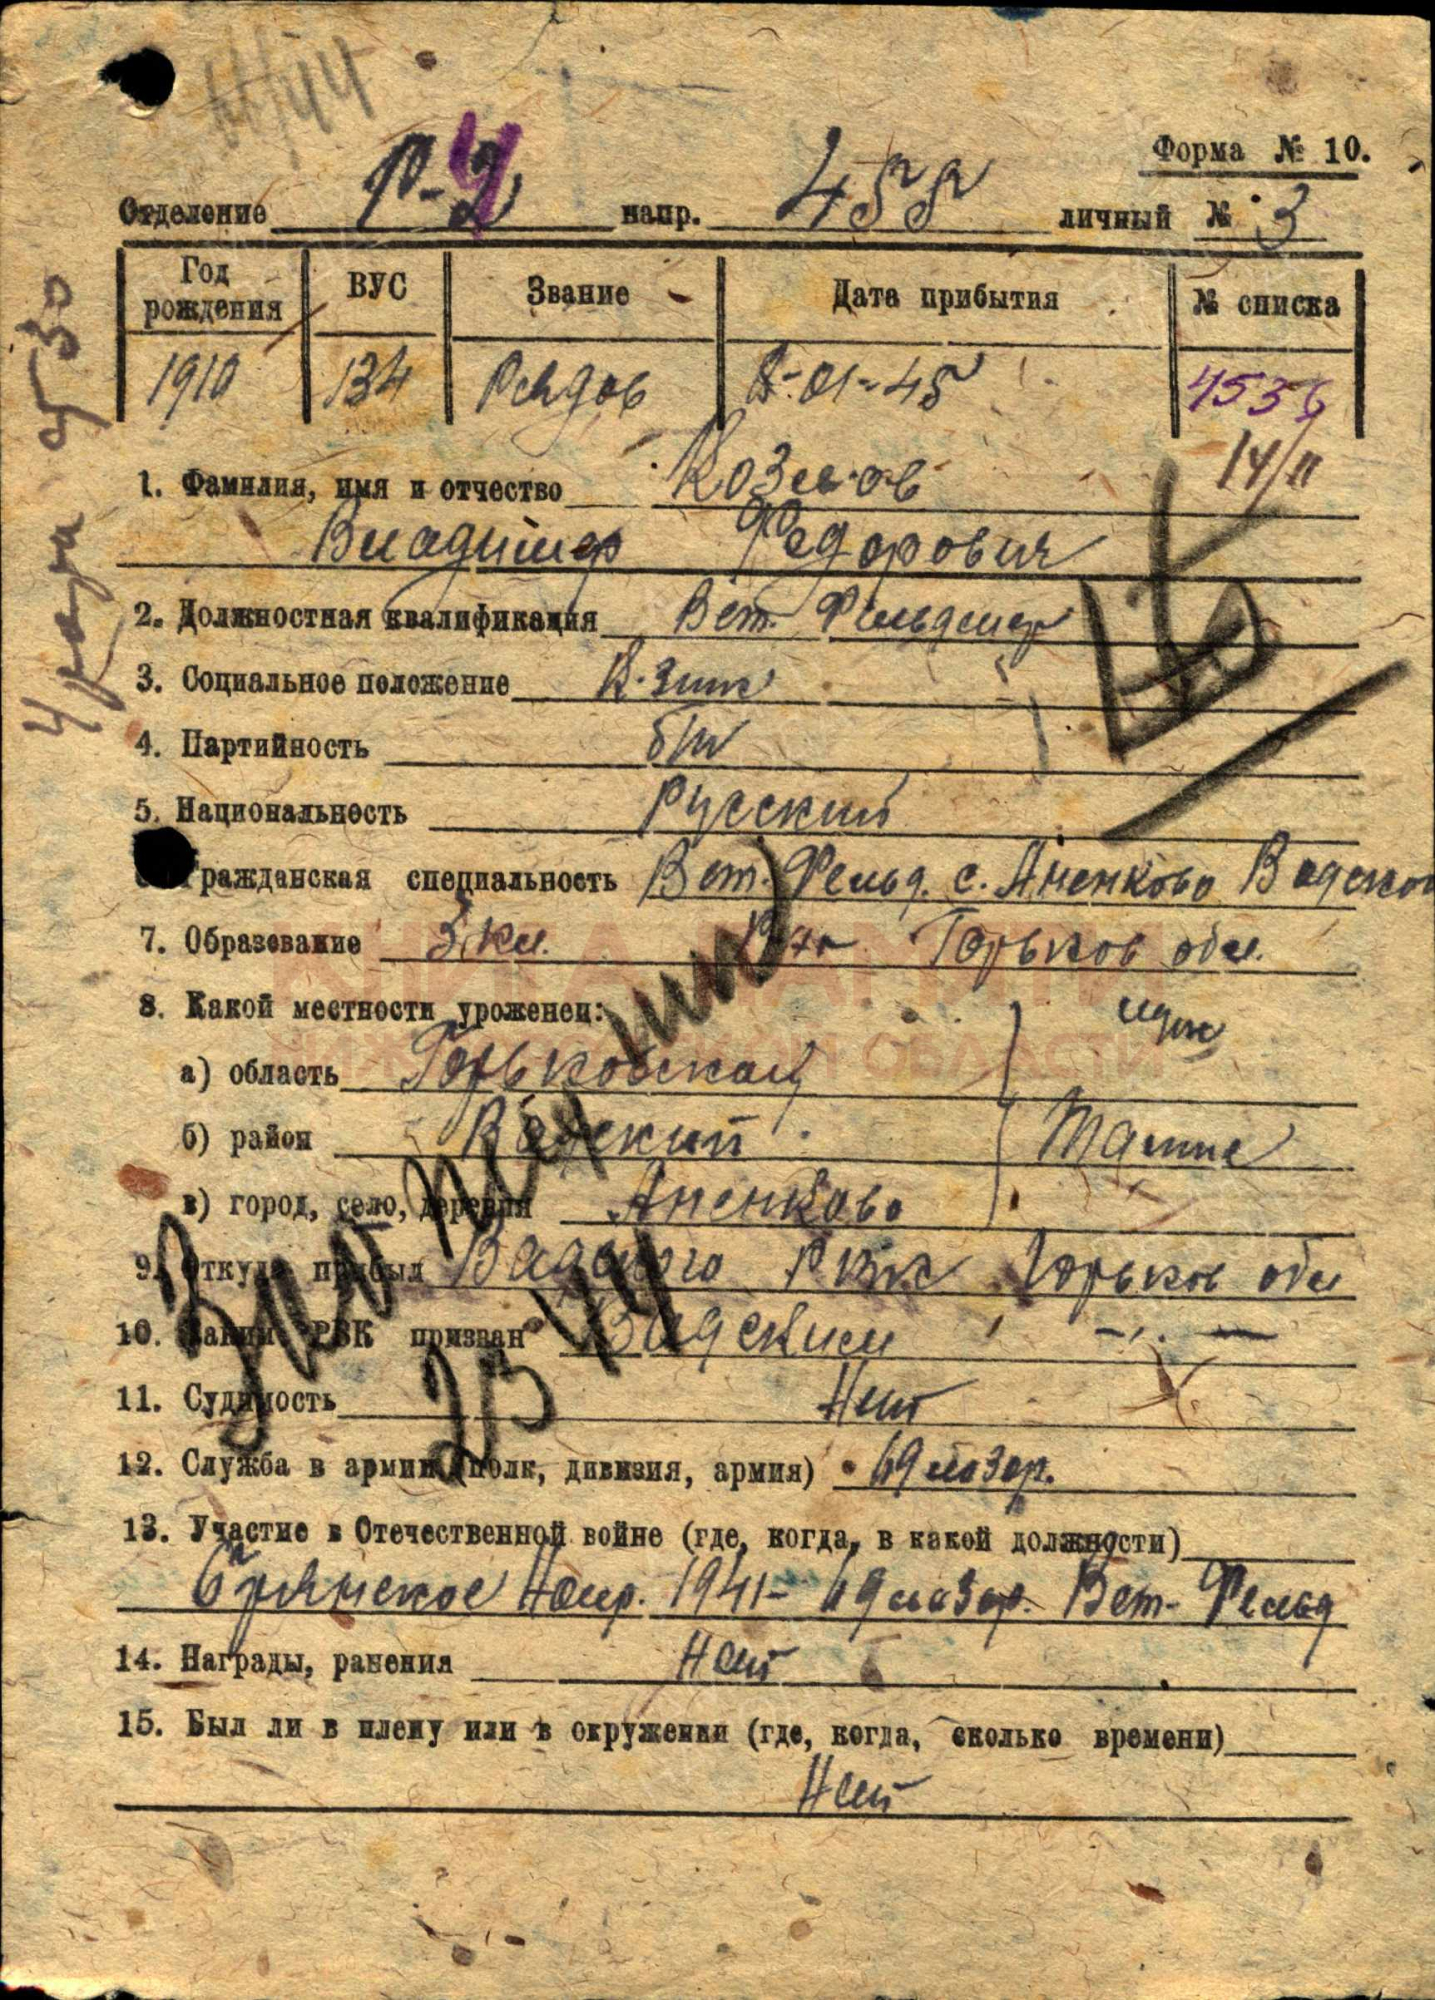 Форма № 10.
Отделение Р-2 напр. 455 личный № 3
Год рождения ВУС Звание Дата прибытия № списка
1910 134 Рядов 8-01-45 4536
14/II
1. Фамилия, имя и отчество Козлов
Владимир Федорович
2. Должностная квалификация Вет. Фельдшер
3. Социальное положение К-зник
4. Партийность б/п
5. Национальность Русский
Гражданская специальность Вет. Фельд. с. Аненково Вадском
7. Образование 3 кл. Р-не Горьков обл.
КНИГА ПАМЯТИ
НИЖЕГОРОДСКОЙ ОБЛАСТИ
8. Какой местности уроженец:
а) область Горьковская
б) район Вадский
в) город, село, деревня Аненково
9. Откуда прибыл Вадского РВК Горьков обл
10. Каким РВК призван Вадским
11. Судимость Нет
12. Служба в армии (полк, дивизия, армия) 69 лазар.
13. Участие в Отечественной войне (где, когда, в какой должности)
Брянское Напр. 1941- 69 лазар. Вет- Фельд
14. Награды, ранения Нет
15. Был ли в плену или в окружении (где, когда, сколько времени)
Нет